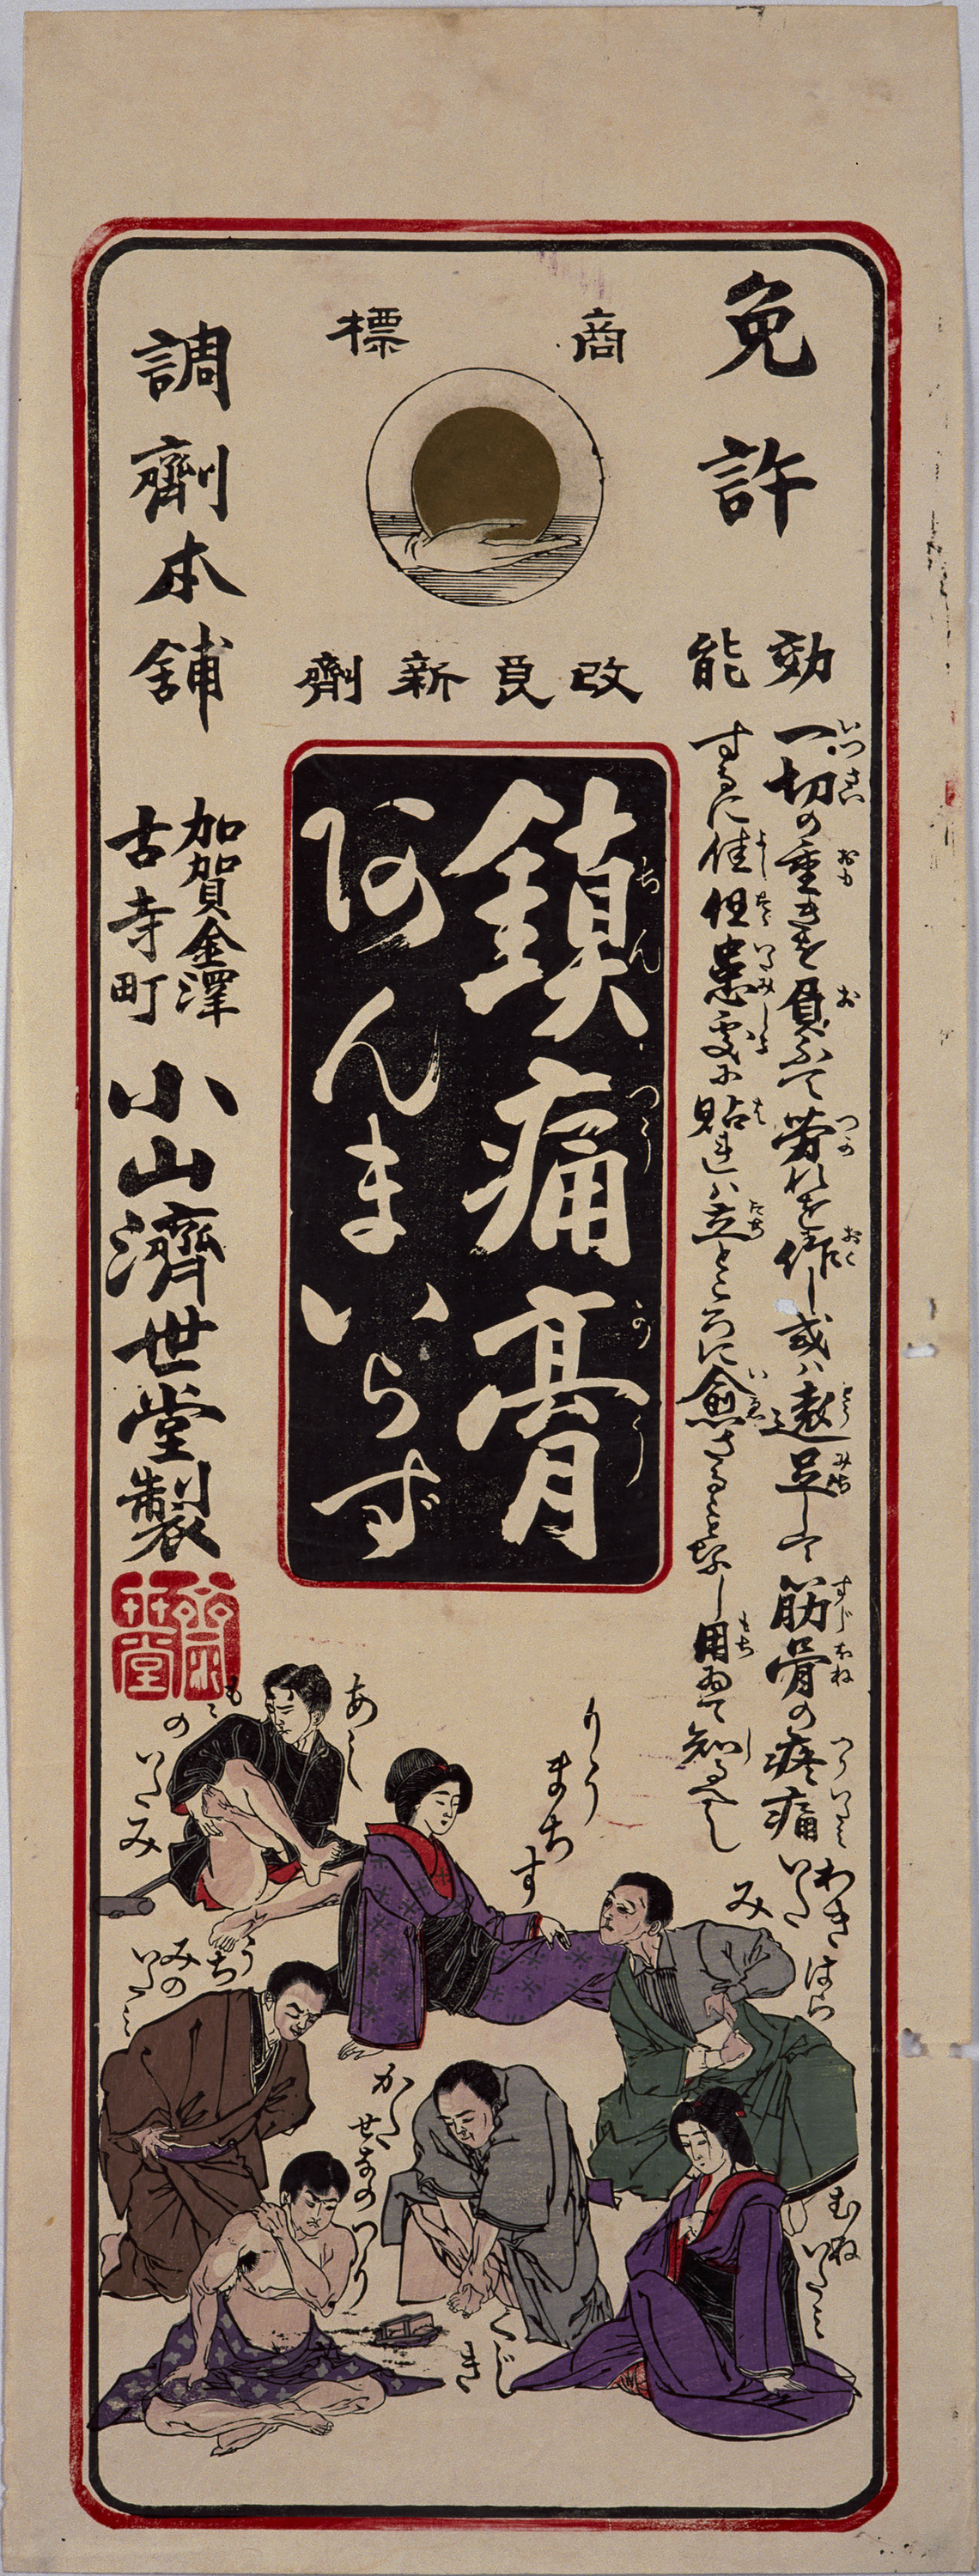 免許
効能
一切の重きを負ふて労れを作し或ハ遠足して筋骨の疼痛
するに佳但患処に貼れハ立ところに愈さること無し用ゐて知るべし
商標
改良新劑
鎮痛膏
ちんつうかう
あんまいらず
調劑本舗
加賀金澤
古寺町
小山濟世堂製
濟世堂
あし
もゝのいたみ
りうまちす
わきはらいたみ
うちみのいたミ
かた
せなのつり
くじき
むねいたミ